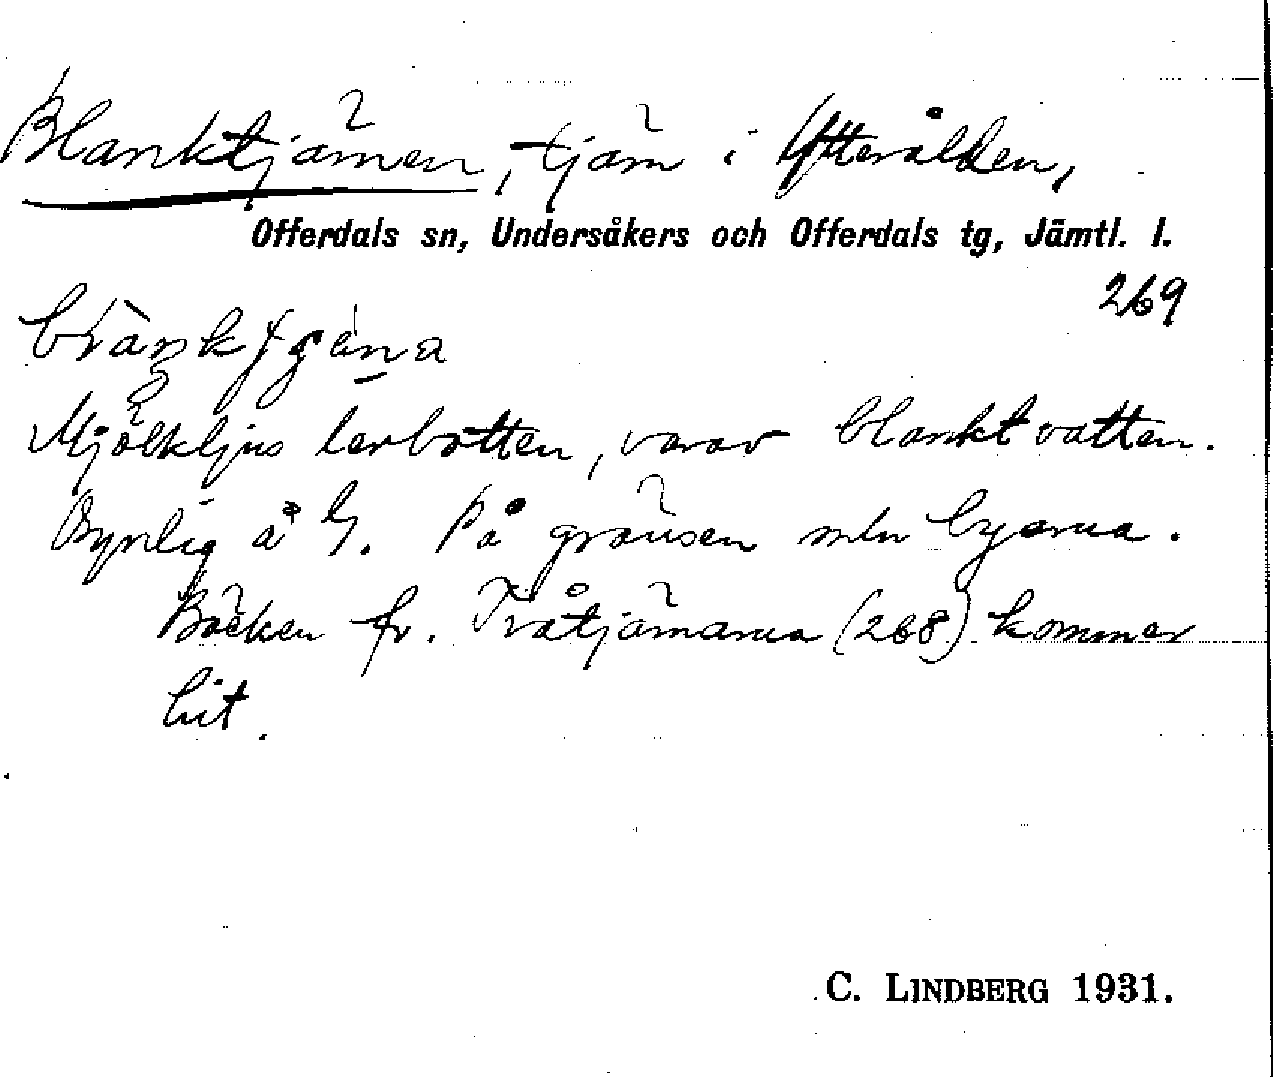 Blanktjärnen, tjärn i Ytterålden,
Offerdals sn, Undersåkers och Offerdals tg, Jämtl. l.
269
Mjölkljus lerbotten, varav blankt vatten.
Osynlig å G. På gränsen mln byarna.
Bäcken fr. Tvåtjärnarna (268) kommer
hit.
C. LINDBERG 1931.